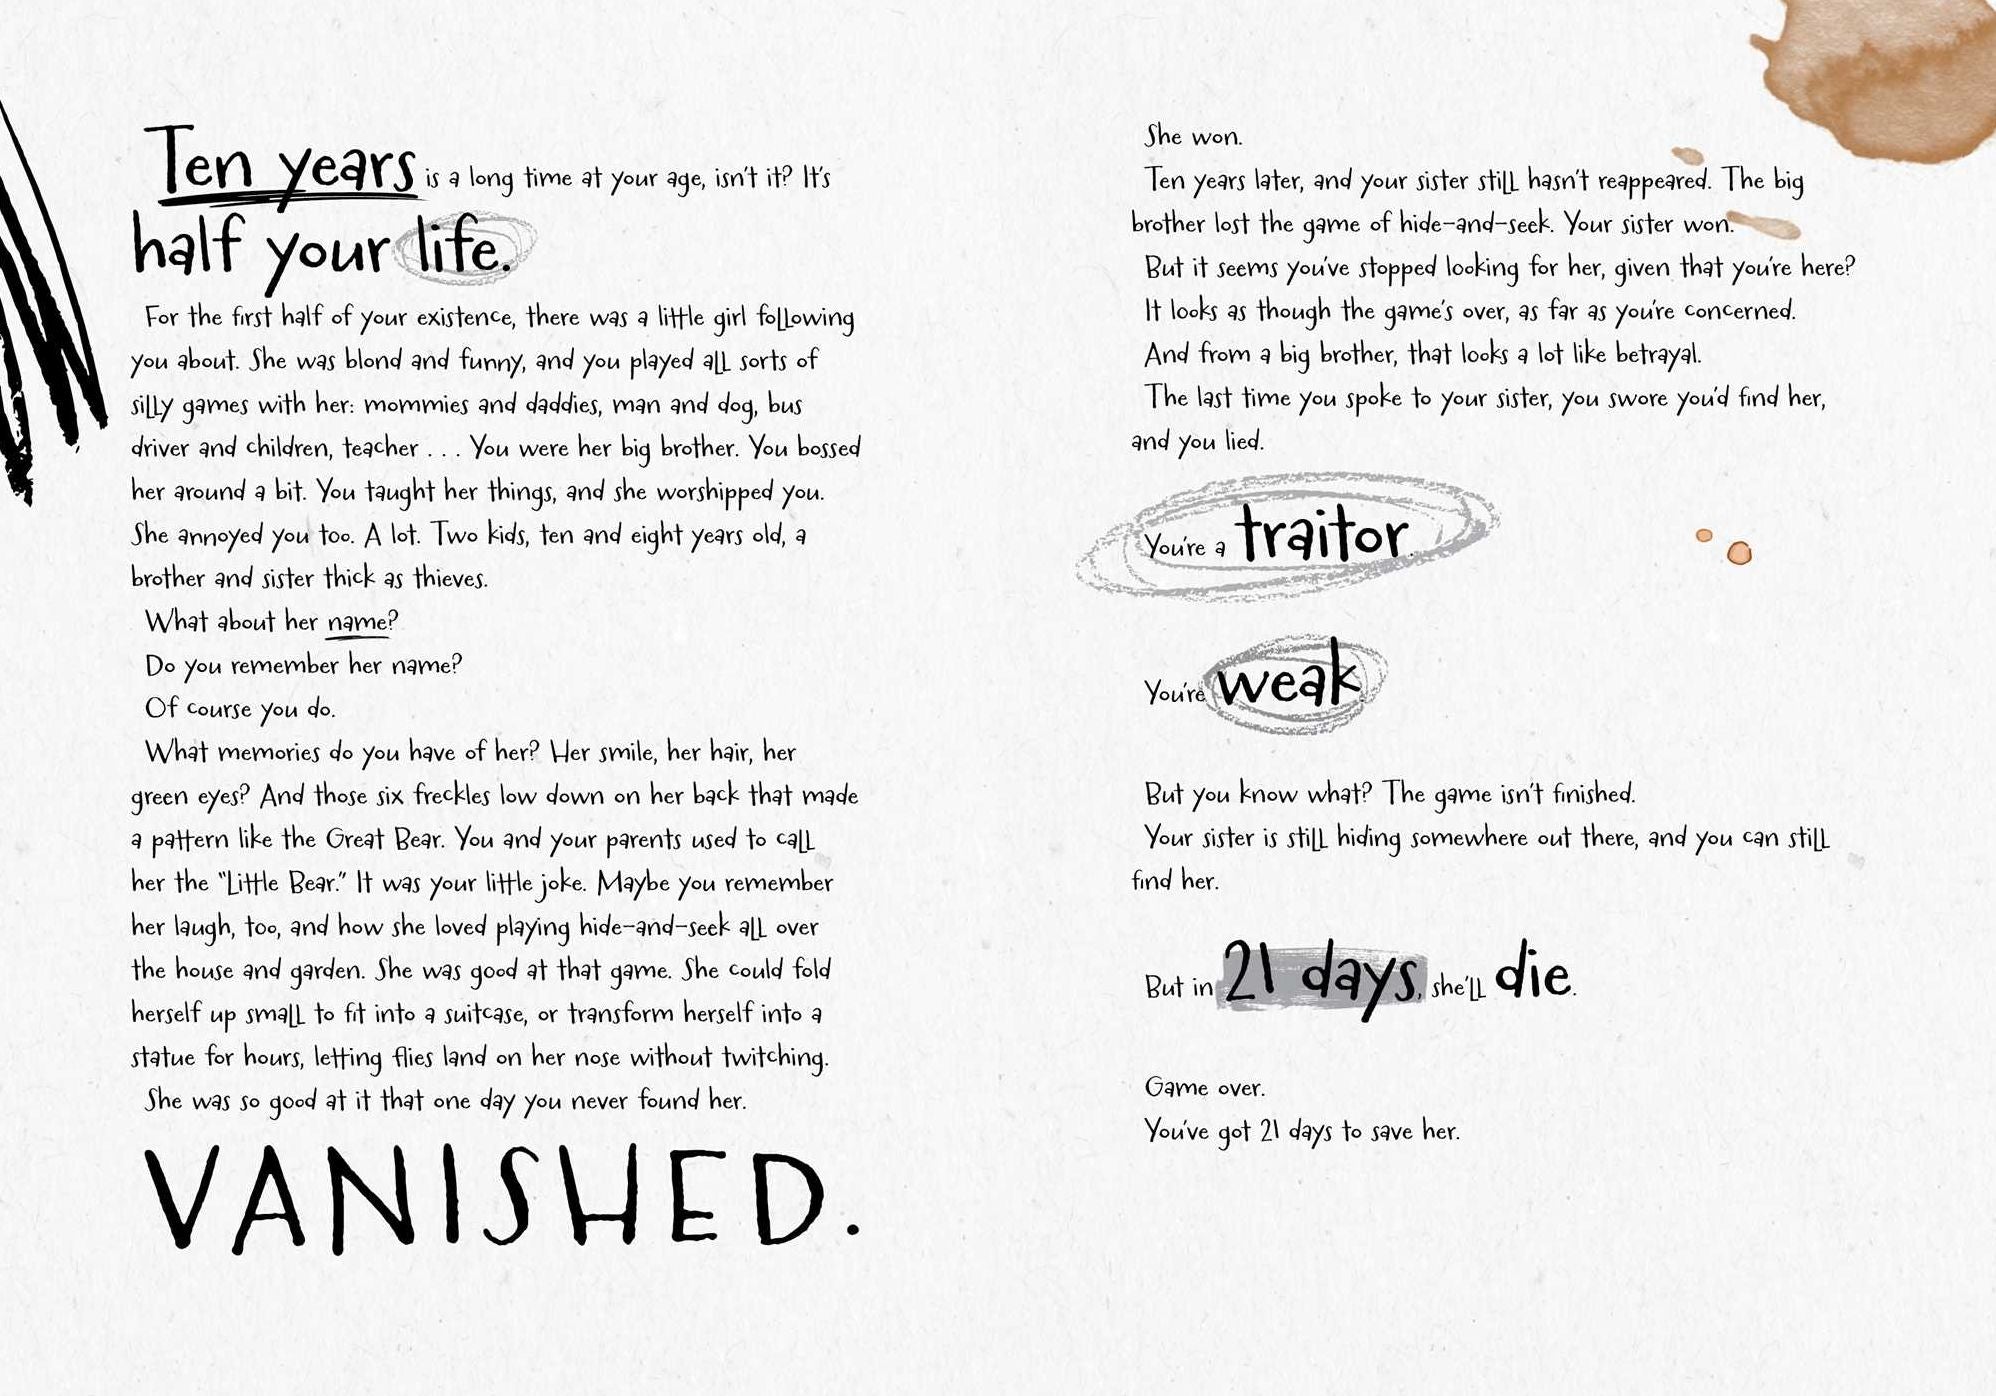 Ten years is a long time at your age, isn't it? It's
half your life.
For the first half of your existence, there was a little girl following
you about. She was blond and funny, and you played all sorts of
silly games with her: mommies and daddies, man and dog, bus
driver and children, teacher . . . You were her big brother. You bossed
her around a bit. You taught her things, and she worshipped you.
She annoyed you too. A lot. Two kids, ten and eight years old, a
brother and sister thick as thieves.
What about her name?
Do you remember her name?
Of course you do.
What memories do you have of her? Her smile, her hair, her
green eyes? And those six freckles low down on her back that made
a pattern like the Great Bear. You and your parents used to call
her the "Little Bear." It was your little joke. Maybe you remember
her laugh, too, and how she loved playing hide-and-seek all over
the house and garden. She was good at that game. She could fold
herself up small to fit into a suitcase, or transform herself into a
statue for hours, letting flies land on her nose without twitching.
She was so good at it that one day you never found her.
VANISHED.
She won.
Ten years later, and your sister still hasn't reappeared. The big
brother lost the game of hide-and-seek. Your sister won.
But it seems you've stopped looking for her, given that you're here?
It looks as though the game's over, as far as you're concerned.
And from a big brother, that looks a lot like betrayal.
The last time you spoke to your sister, you swore you'd find her,
and you lied.
You're a traitor.
You're weak.
But you know what? The game isn't finished.
Your sister is still hiding somewhere out there, and you can still
find her.
But in 21 days, she'll die.
Game over.
You've got 21 days to save her.